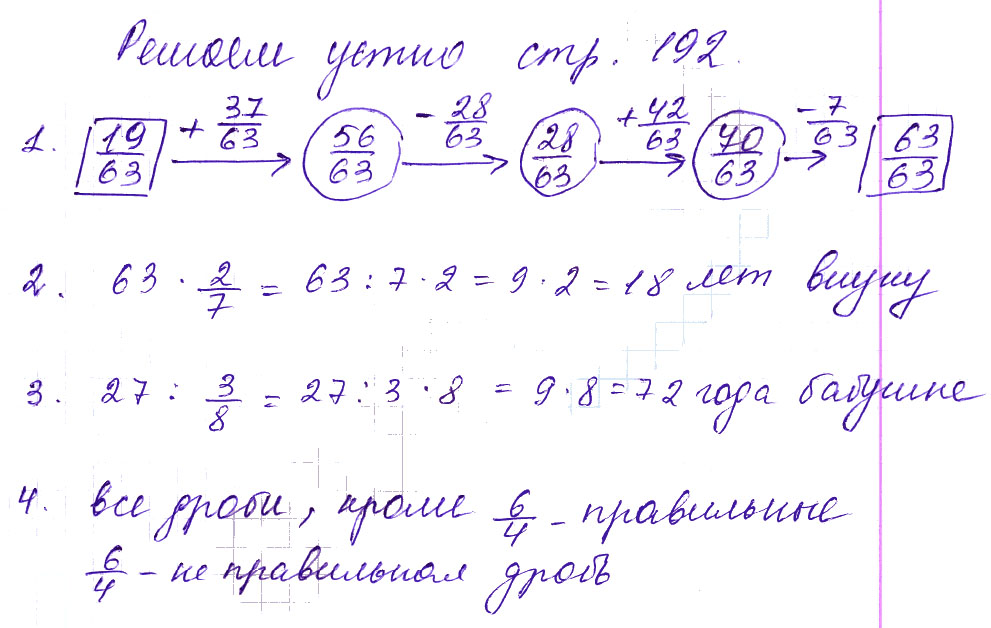 Решаем устно стр. 192.
1. 19/63 + 37/63 → 56/63 - 28/63 → 28/63 + 42/63 → 70/63 - 7/63 → 63/63
2. 63 · 2/7 = 63 : 7 · 2 = 9 · 2 = 18 лет внуку
3. 27 : 3/8 = 27 : 3 · 8 = 9 · 8 = 72 года бабушке
4. все дроби, кроме 6/4 - правильные
6/4 - не правильная дробь